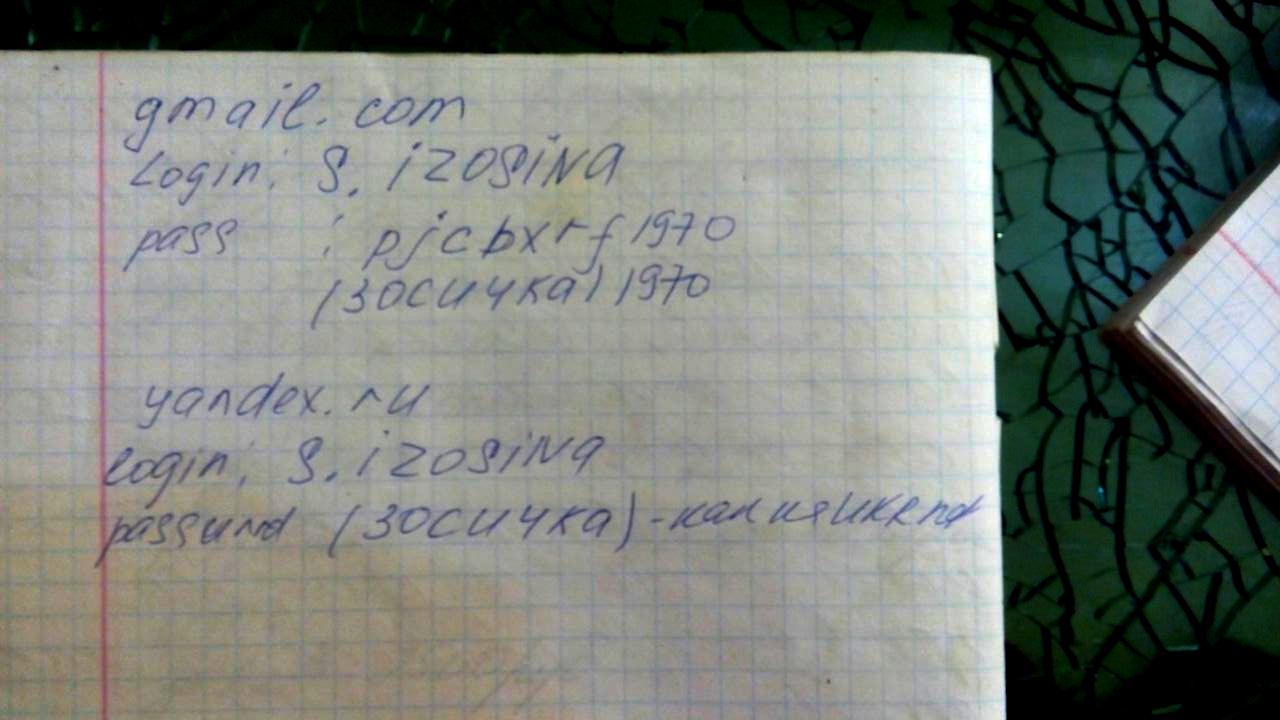 gmail.com
Login: S.izosiNa
pass : pjcbxrf1970
(зосичка) 1970
yandex.ru
login: S.izosiNa
(зосичка) -